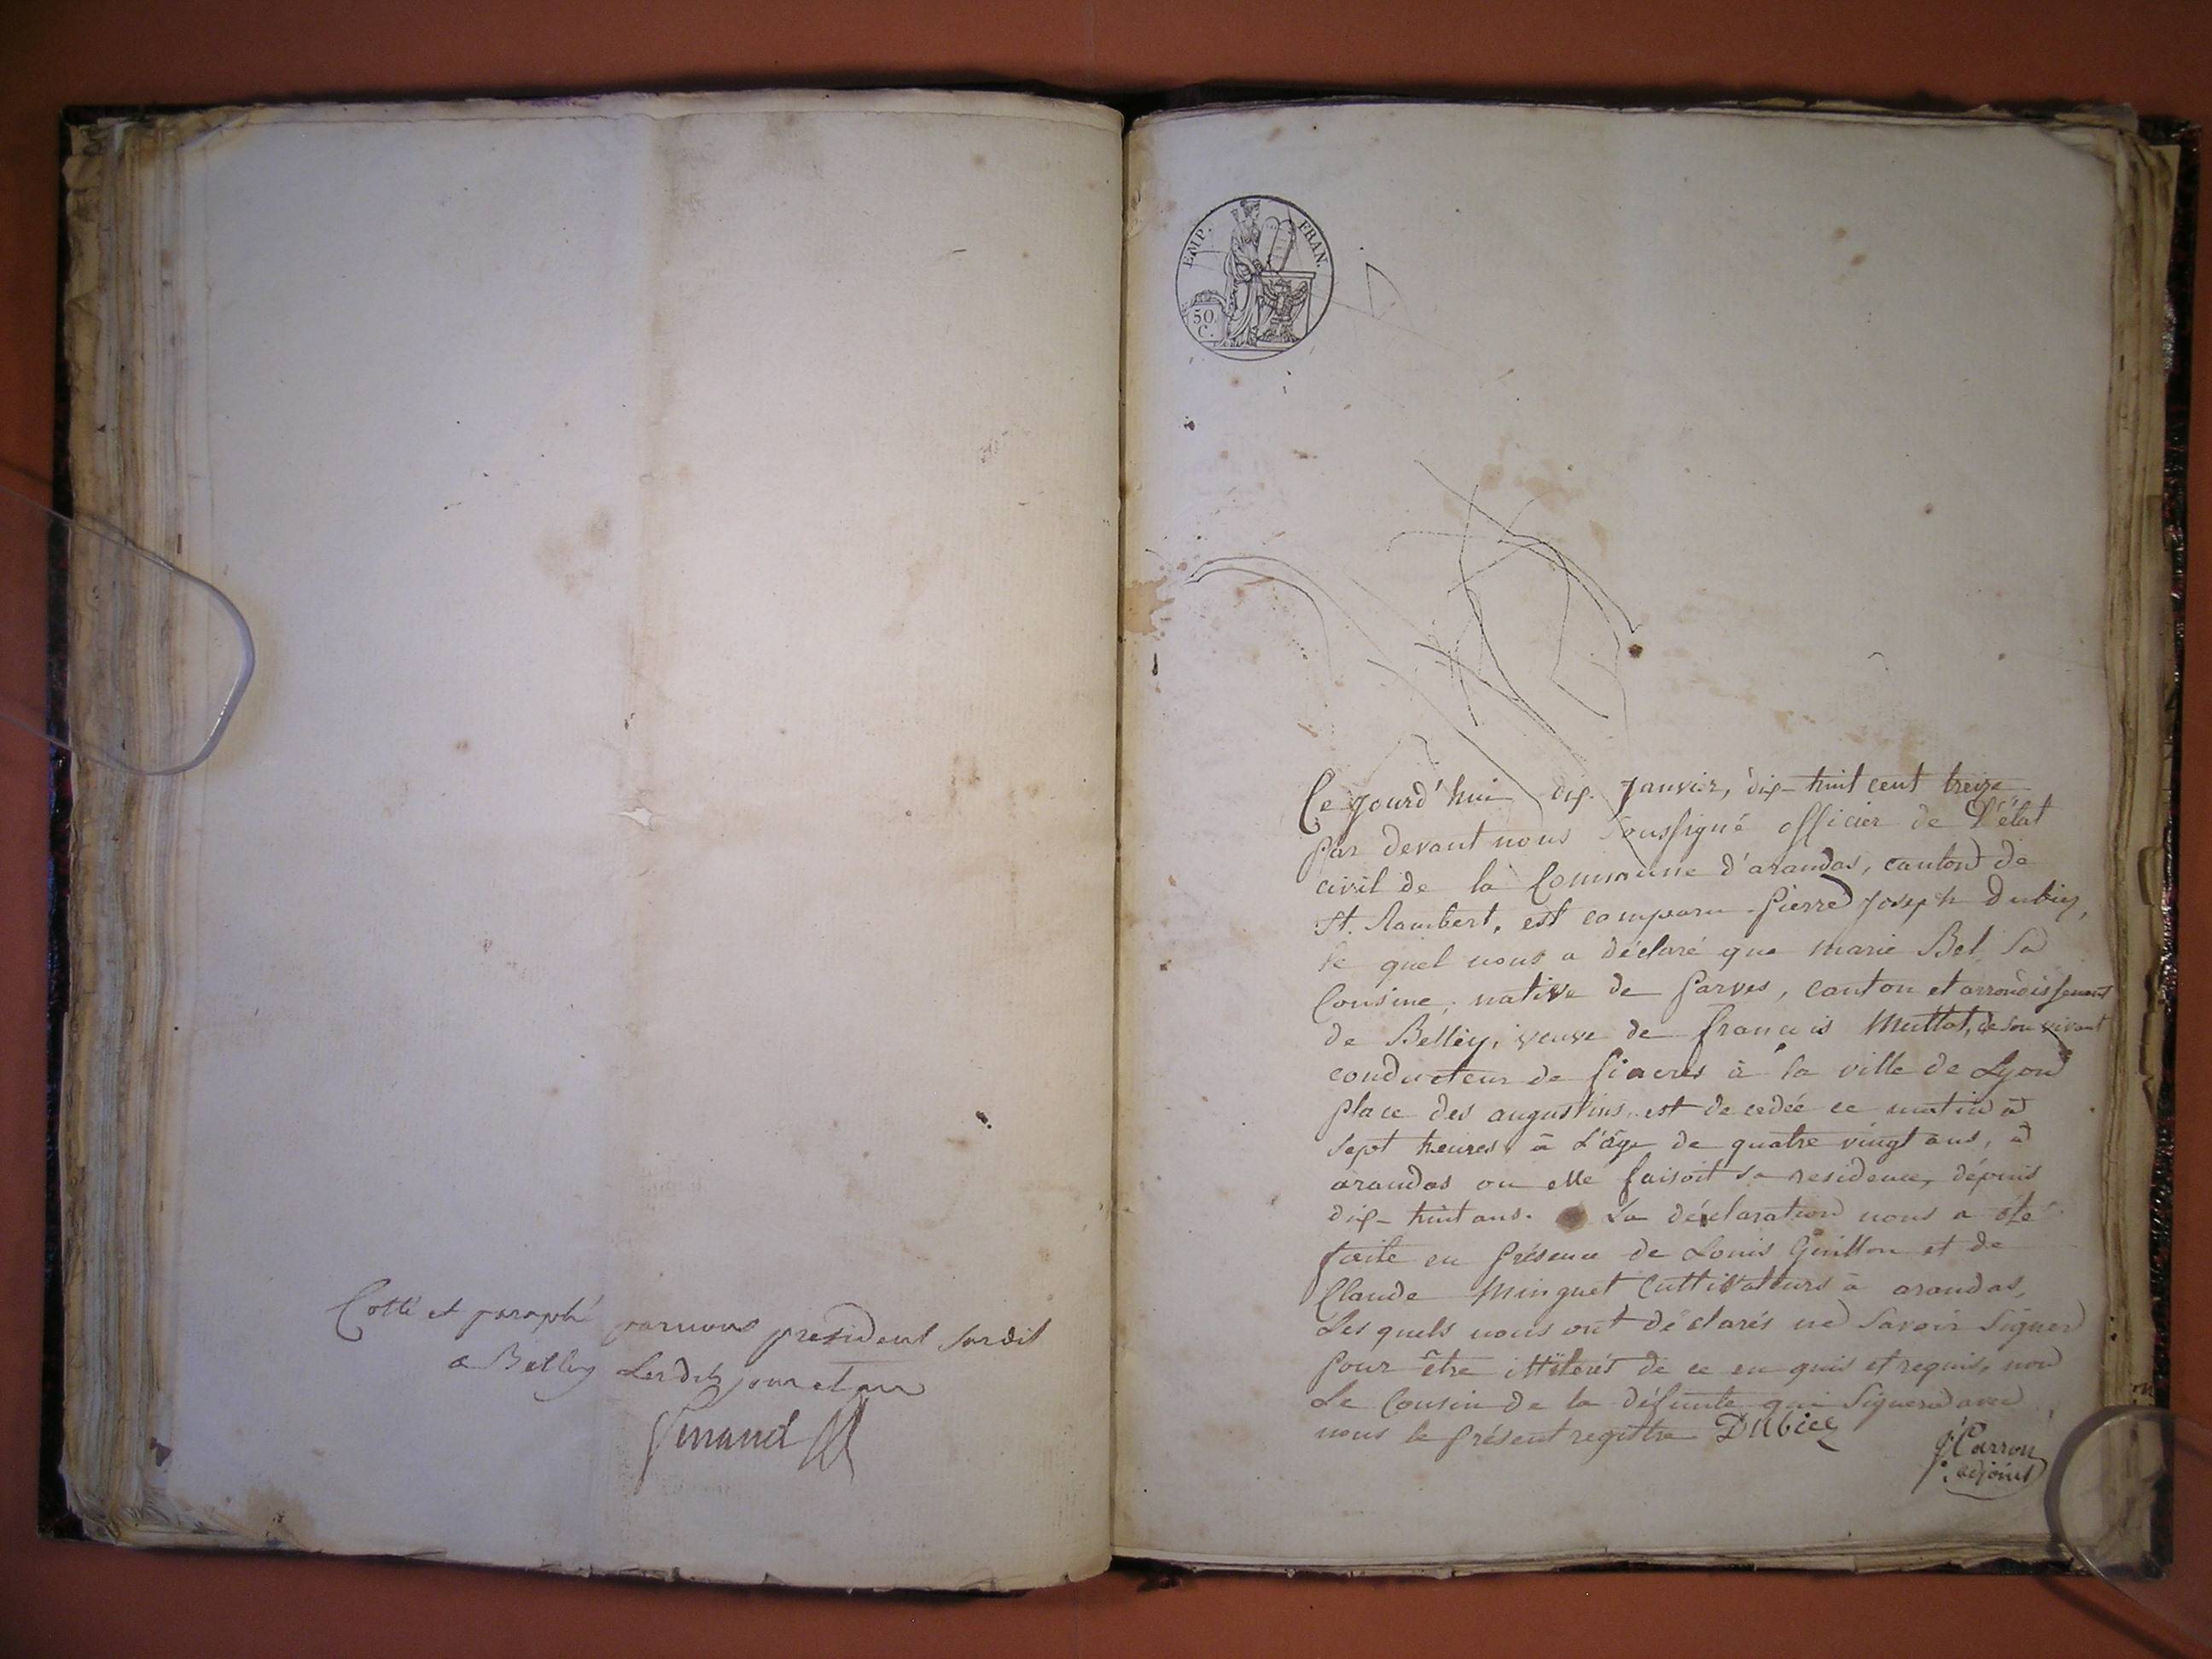 Cotté et paraphé par nous president susdit
a Belley Lesdits jour et an
EMP. FRAN.
50
C.
Ce jourd'hui dix Janvier, dix-huit cent treize
par devant nous soussigné officier de L'état
civil de la Commune d'arandas, canton de
St. Rambert, est comparu pierre joseph Dubiez,
le quel nous a déclaré que marie Bel, sa
Cousine, native de parves, canton et arrondissement
de Belley, veuve de françois Muttot, de son vivant
conducteur de fiacres à la ville de Lyon
place des augustins, est decedée ce matin à
sept heures à L'âge de quatre vingt ans, à
arandas ou elle faisoit sa residence, dépuis
dix-huit ans. La déclaration nous a été
faite en présence de Louis Guillon et de
Claude Minguet Cultivateurs à arandas,
Les quels nous ont déclarés ne savoir signer
pour être illiterés de ce en quis et requis, non
Le Cousin de la défunte qui signera avec
nous le présent registre DUBiez
Carron
adjoint